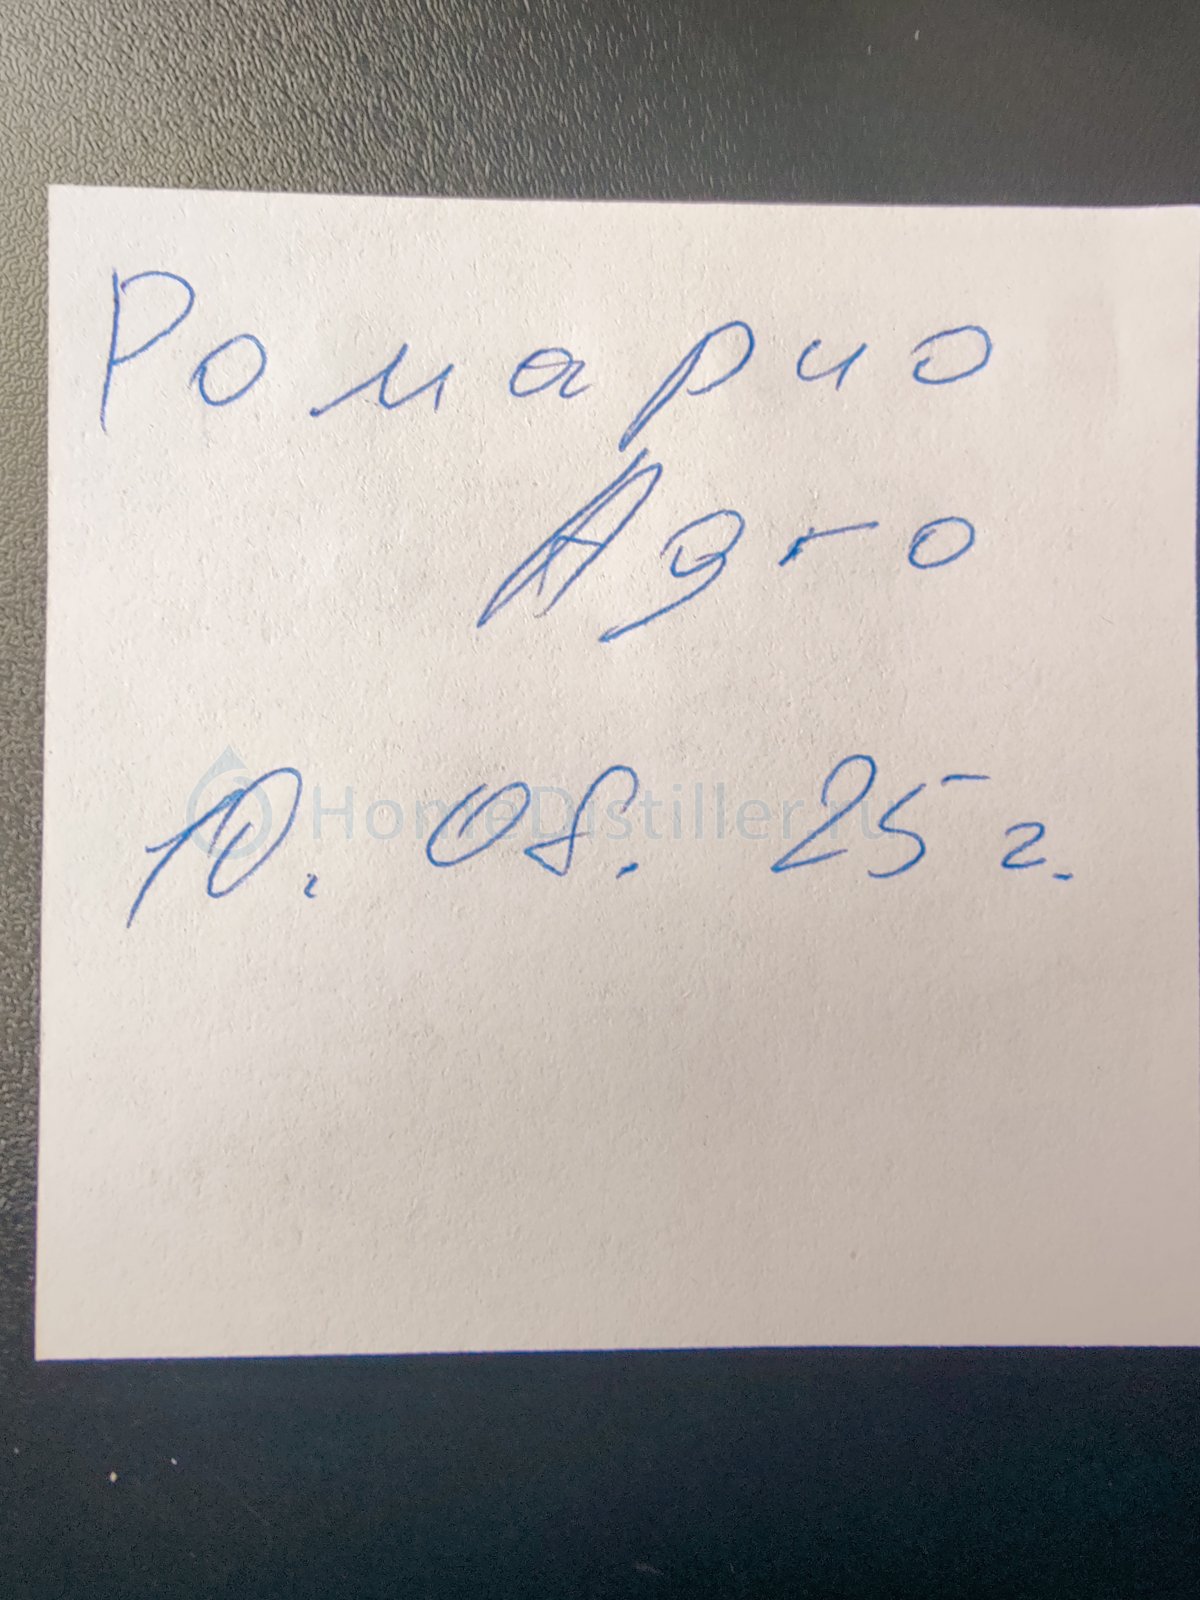 Ромарио
Адго
10.08.25 г.
HomeDistiller.ru